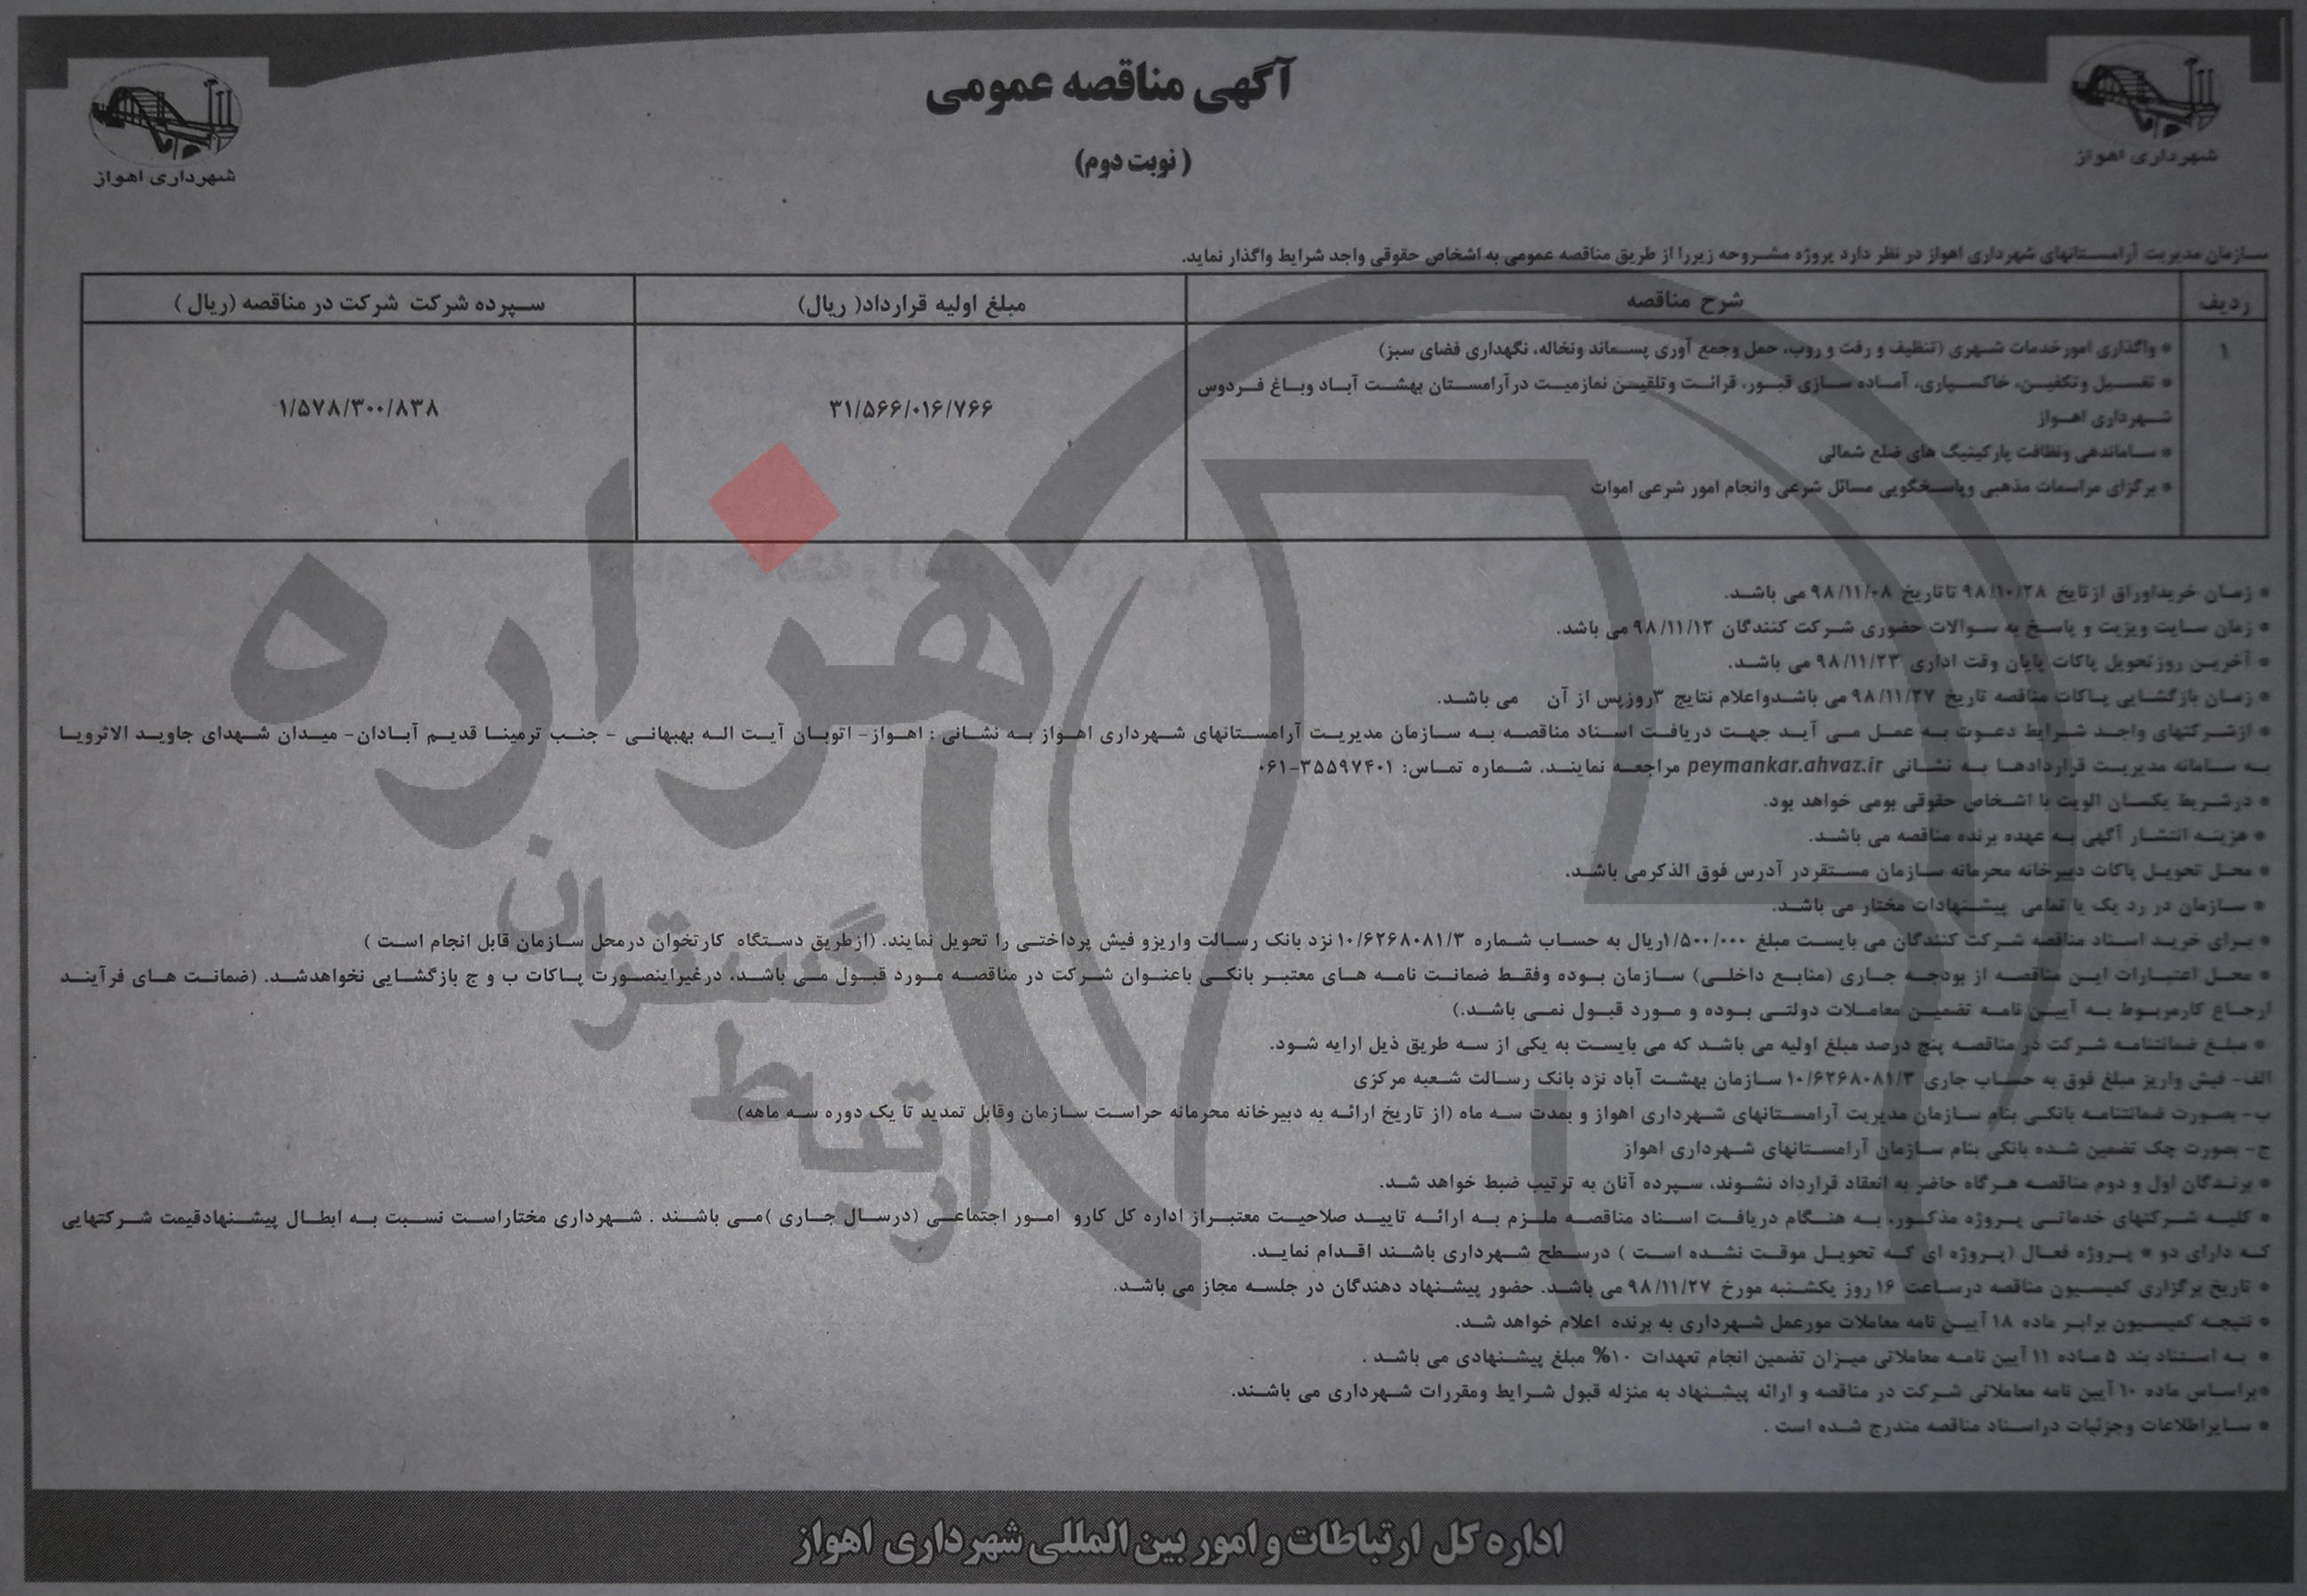 آگهی مناقصه عمومی
( نوبت دوم)
شهرداری اهواز
شهرداری اهواز
سازمان مدیریت آرامستانهای شهرداری اهواز در نظر دارد پروژه مشروحه زیررا از طریق مناقصه عمومی به اشخاص حقوقی واجد شرایط واگذار نماید.
ردیف
شرح مناقصه
مبلغ اولیه قرارداد( ریال)
سپرده شرکت شرکت در مناقصه (ریال )
۱
* واگذاری امورخدمات شهری (تنظیف و رفت و روب، حمل وجمع آوری پسماند ونخاله، نگهداری فضای سبز)
* تغسیل وتکفین، خاکسپاری، آماده سازی قبور، قرائت وتلقین نمازمیت درآرامستان بهشت آباد وباغ فردوس
شهرداری اهواز
* ساماندهی ونظافت پارکینیگ های ضلع شمالی
* برگزای مراسمات مذهبی وپاسخگویی مسائل شرعی وانجام امور شرعی اموات
۳۱/۵۶۶/۰۱۶/۷۶۶
۱/۵۷۸/۳۰۰/۸۳۸
* زمان خریداوراق ازتایخ ۹۸/۱۰/۲۸ تاتاریخ ۹۸/۱۱/۰۸ می باشد.
* زمان سایت ویزیت و پاسخ به سوالات حضوری شرکت کنندگان ۹۸/۱۱/۱۲ می باشد.
* آخرین روزتحویل پاکات پایان وقت اداری ۹۸/۱۱/۲۳ می باشد.
* زمان بازگشایی پاکات مناقصه تاریخ ۹۸/۱۱/۲۷ می باشدواعلام نتایج ۳روزپس از آن می باشد.
* ازشرکتهای واجد شرایط دعوت به عمل می آید جهت دریافت اسناد مناقصه به سازمان مدیریت آرامستانهای شهرداری اهواز به نشانی : اهواز- اتوبان آیت اله بهبهانی - جنب ترمینا قدیم آبادان- میدان شهدای جاوید الاثرویا
به سامانه مدیریت قراردادها به نشانی peymankar.ahvaz.ir مراجعه نمایند. شماره تماس: ۳۵۵۹۷۴۰۱-۰۶۱
* درشریط یکسان الویت با اشخاص حقوقی بومی خواهد بود.
* هزینه انتشار آگهی به عهده برنده مناقصه می باشد.
* محل تحویل پاکات دبیرخانه محرمانه سازمان مستقردر آدرس فوق الذکرمی باشد.
* سازمان در رد یک یا تمامی پیشنهادات مختار می باشد.
* برای خرید اسناد مناقصه شرکت کنندگان می بایست مبلغ ۱/۵۰۰/۰۰۰ریال به حساب شماره ۱۰/۶۲۶۸۰۸۱/۳ نزد بانک رسالت واریزو فیش پرداختی را تحویل نمایند. (ازطریق دستگاه کارتخوان درمحل سازمان قابل انجام است )
* محل اعتبارات این مناقصه از بودجه جاری (منابع داخلی) سازمان بوده وفقط ضمانت نامه های معتبر بانکی باعنوان شرکت در مناقصه مورد قبول می باشد، درغیراینصورت پاکات ب و ج بازگشایی نخواهدشد. (ضمانت های فرآیند
ارجاع کارمربوط به آیین نامه تضمین معاملات دولتی بوده و مورد قبول نمی باشد.)
* مبلغ ضمانتنامه شرکت در مناقصه پنج درصد مبلغ اولیه می باشد که می بایست به یکی از سه طریق ذیل ارایه شود.
الف- فیش واریز مبلغ فوق به حساب جاری ۱۰/۶۲۶۸۰۸۱/۳ سازمان بهشت آباد نزد بانک رسالت شعبه مرکزی
ب- بصورت ضمانتنامه بانکی بنام سازمان مدیریت آرامستانهای شهرداری اهواز و بمدت سه ماه (از تاریخ ارائه به دبیرخانه محرمانه حراست سازمان وقابل تمدید تا یک دوره سه ماهه)
ج- بصورت چک تضمین شده بانکی بنام سازمان آرامستانهای شهرداری اهواز
* برندگان اول و دوم مناقصه هرگاه حاضر به انعقاد قرارداد نشوند، سپرده آنان به ترتیب ضبط خواهد شد.
* کلیه شرکتهای خدماتی پروژه مذکور، به هنگام دریافت اسناد مناقصه ملزم به ارائه تایید صلاحیت معتبراز اداره کل کارو امور اجتماعی (درسال جاری )می باشند . شهرداری مختاراست نسبت به ابطال پیشنهادقیمت شرکتهایی
که دارای دو * پروژه فعال (پروژه ای که تحویل موقت نشده است ) درسطح شهرداری باشند اقدام نماید.
* تاریخ برگزاری کمیسیون مناقصه درساعت ۱۶ روز یکشنبه مورخ ۹۸/۱۱/۲۷ می باشد. حضور پیشنهاد دهندگان در جلسه مجاز می باشد.
* نتیجه کمیسیون برابر ماده ۱۸ آیین نامه معاملات مورعمل شهرداری به برنده اعلام خواهد شد.
* به استناد بند ۵ ماده ۱۱ آیین نامه معاملاتی میزان تضمین انجام تعهدات ۱۰% مبلغ پیشنهادی می باشد .
*براساس ماده ۱۰ آیین نامه معاملاتی شرکت در مناقصه و ارائه پیشنهاد به منزله قبول شرایط ومقررات شهرداری می باشند.
* سایراطلاعات وجزئیات دراسناد مناقصه مندرج شده است .
اداره کل ارتباطات و امور بین المللی شهرداری اهواز
هزاره
گستران
ارتباط